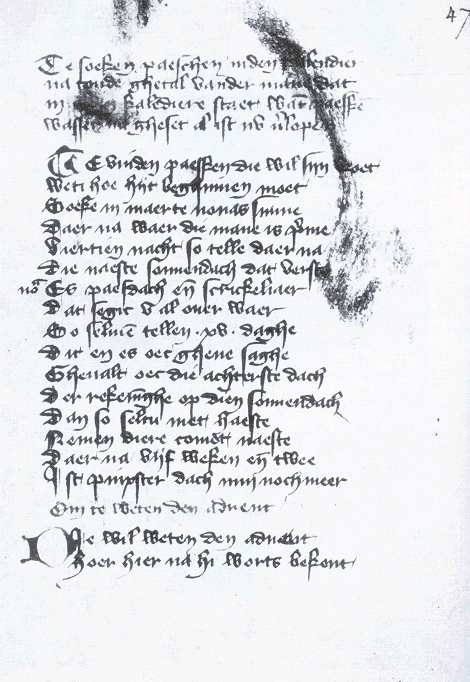 47
Te soeken paeschen in den kalendier
na toude ghetal vander mane dat
in kalēdiere staet wāt paeske
wassen na gheset al ist nv v̄lopē
Te vinden paesken die wil sijn doet
weti hoe hijt beghinnen moet
Soeke in maerte nonas sinne
Daer na waer die mane is p̄me
Viertien nacht so telle daer na
Die naeste sonnendach dat verst
no͛ Es paeschdach eñ scrickeliaer
Dat segic v al ouer waer
So seluē tellen .xv. daghe
Dit en es oec ghene saghe
Gheualt oec die achterste dach
Der rekeninghe op dien sonnendach
Dan so seltu met haeste
Nemen diere comdt naeste
Daer na vijf weken eñ twee
Ist pinxster dach min noch meer
Om te weten den aduent
Die wil weten den aduent
hoer hier na hi worts bekent